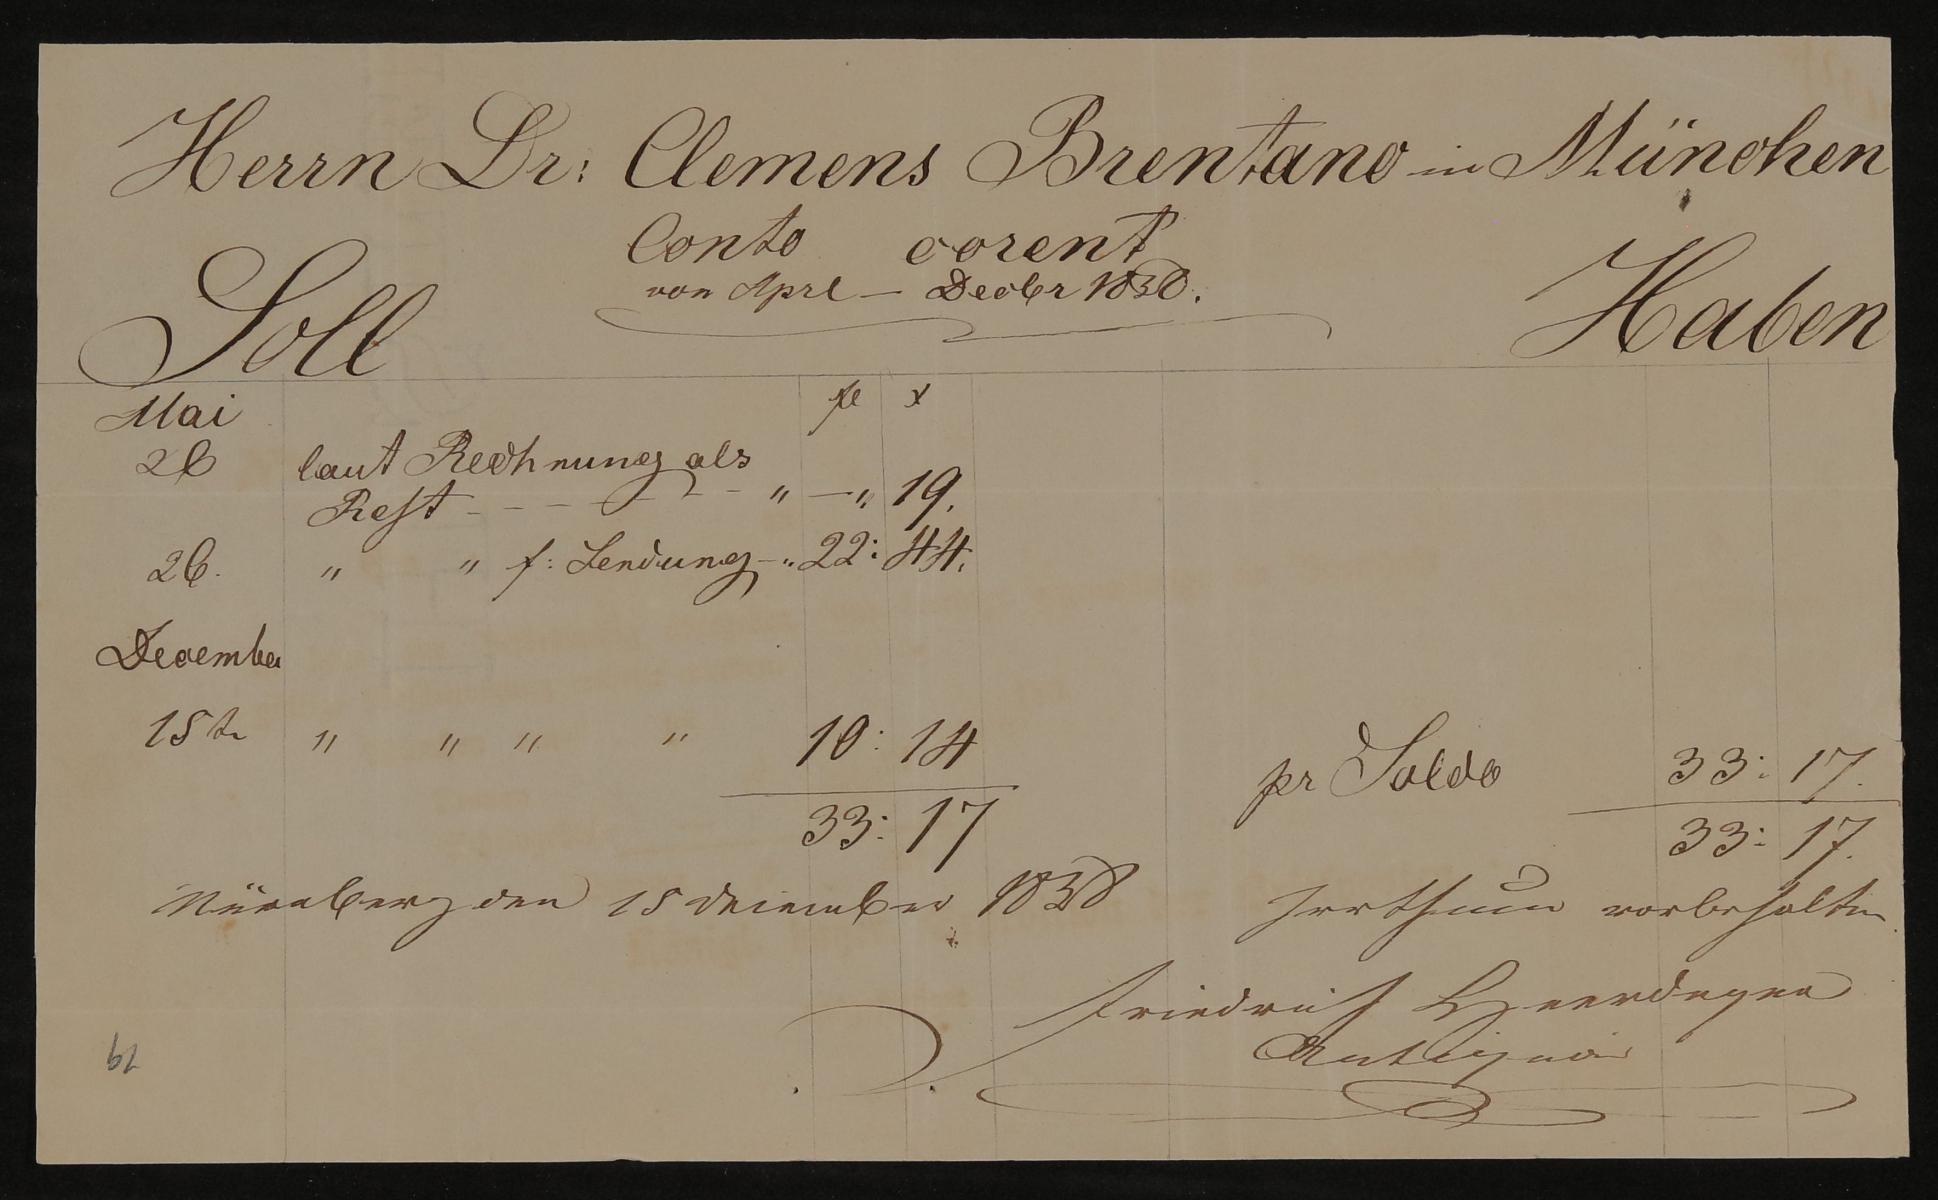 Herrn Dr: Clemens Brentano in München
Conto corent
von Aprl — Decbr 1838.
Soll Haben
fl x
Mai
26 laut Rechnung als
Rest - - - - - - " — " 19.
26. " " f: Sendung - " 22: 44.
December
15tn " " " " 10: 14
pr Saldo 33: 17.
33: 17
33: 17.
Nürnberg den 15 December 1838
Irrthum vorbehalten
Friedrich Heerdegen
Antiquar